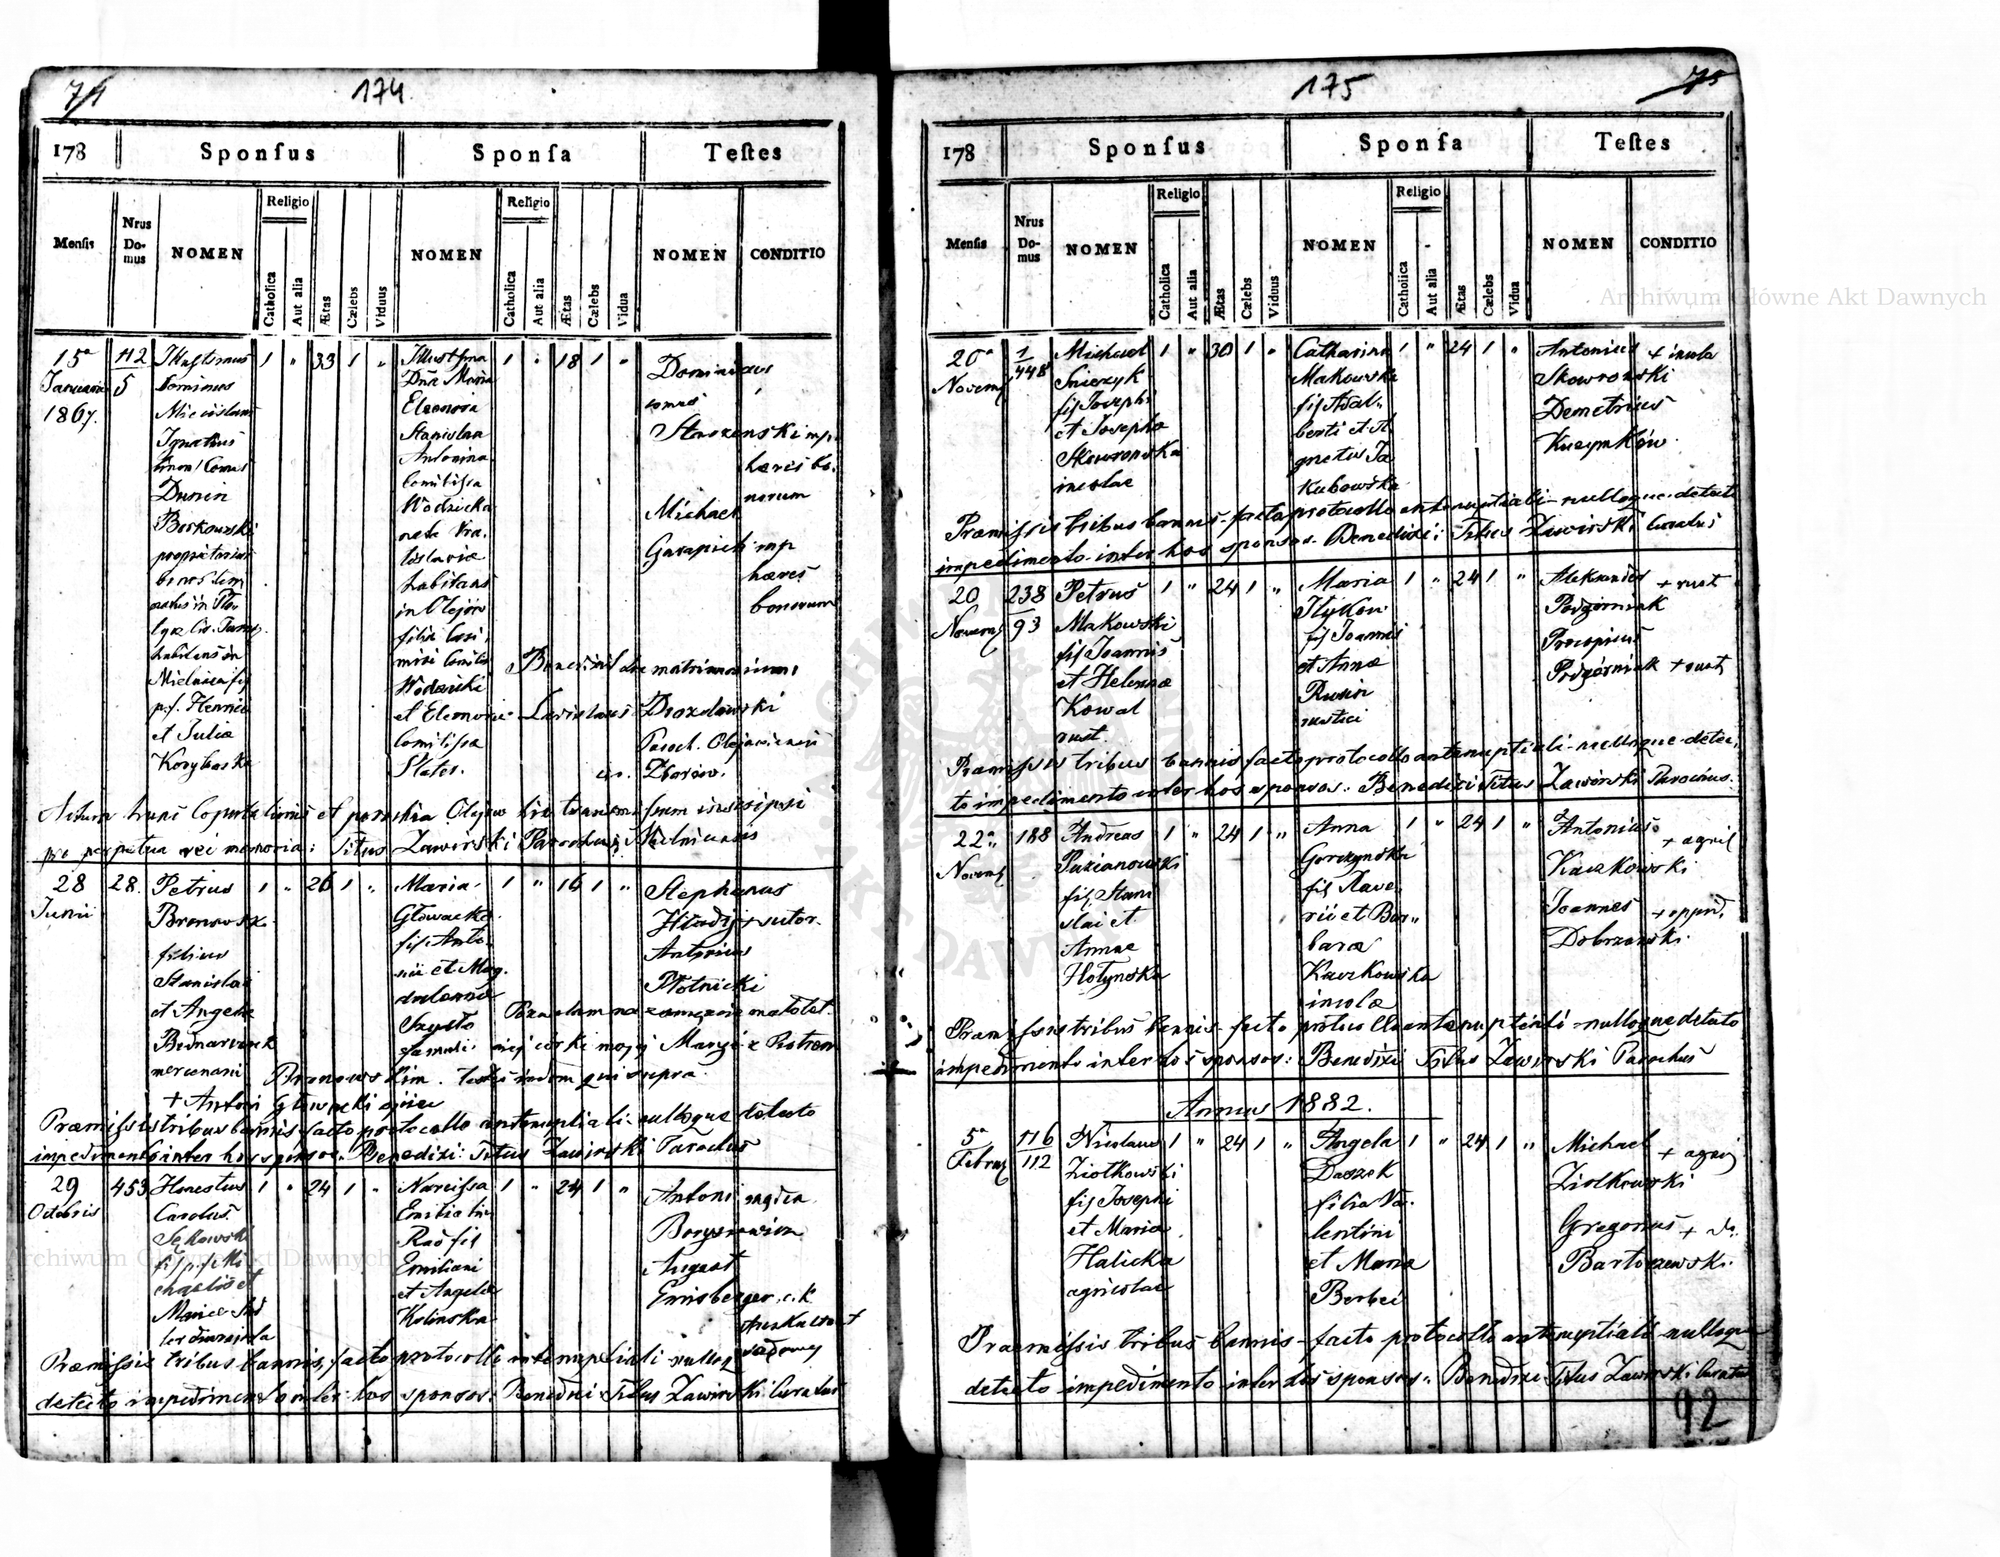 74
174
178
Sponsus
Sponsa
Testes
Mensis
Nrus Do- mus
NOMEN
Religio
Catholica
Aut alia
Ætas
Cælebs
Viduus
NOMEN
Religio
Catholica
Aut alia
Ætas
Cælebs
Vidua
NOMEN
CONDITIO
15ª
Januarii
1867.
112
5
Illustrimus
Dominus
Miecislaus
Ignatius
Comes
Dunin
Borkowski
proprietarius
habitans in
Mielnica fil
p. f. Henrici
et Juliæ
Korybutska
1 " 33 1 "
Illustrma
Dna Maria
Eleonora
Stanislaa
Antonina
Comitissa
Wodzicka
nata Vra-
tislaviæ
habitans
in Olejów
filia Casi-
miri Comitis
Wodzicki
et Eleonoræ
Comitissæ
Stater.
1 " 18 1 "
Dominicus
comes
Starzenski mp.
hæres bo-
norum
Michael
Garapich mp
hæres
bonorum
Benedixit hoc matrimonium
Ladislaus Drozdowski
Paroch. Olejoviensis
Zborów.
Actum huius Copulationis et parochia Olejow hic transmissum inscripsi
pro perpetua rei memoria: Titus Zawirski Parochus Mielnicensis
28
Junii
28.
Petrus
Bronowski
filius
Stanislai
et Angelæ
Bednarczuk
mercenarii
1 " 26 1 "
Maria
Głowacka
fil Anto-
nii et Mag-
dalenæ
Szydło
famuli
1 " 16 1 "
Stephanus
Hładij + sutor.
Antonius
Płotnicki
Pozwalam na zamęzcie małolet-
niej córki mojej Maryi z Piotrem
Bronowskim. Testes iidem qui supra.
+ Antoni Głowacki ojciec
Præmissis tribus bannis facto protocollo antenuptiali nulloque detecto
impedimento inter hos sponsos. Benedixi: Titus Zawirski Parochus
29
Octobris
453
Honestus
Carolus
Sękowski
fil p. f. Mi-
chaelis et
Mariæ
1 " 24 1 "
Narcissa
Emilia
Rad fil
Emiliani
et Angelæ
Kolinska
1 " 24 1 "
Antoni
Boryszewicz
August
Ernsberger c. k
Auskultant
sądowy
Præmissis tribus bannis, facto protocollo antenuptiali nulloq
detecto impedimento inter hos sponsos: Benedixi Titus Zawirski Curatus
175
75
178
Sponsus
Sponsa
Testes
Mensis
Nrus Do- mus
NOMEN
Religio
Catholica
Aut alia
Ætas
Cælebs
Viduus
NOMEN
Religio
Catholica
Aut alia
Ætas
Cælebs
Vidua
NOMEN
CONDITIO
20ª
Novemb
1
448
Michael
Snieżyk
fil Josephi
et Josepha
Skowronska
incolae
1 " 30 1 "
Catharina
Makowska
fil Adal-
berti et A-
gnetis Ja
kubowska
1 " 24 1 "
Antonius + incola
Skowronski
Demetrius
Kuzymków
Præmissis tribus bannis facto protocollo antenuptiali nulloque detecto
impedimento inter hos sponsos. Benedixi: Titus Zawirski Curatus
20
Novemb
238
93
Petrus
Makowski
fil Joannis
et Helenæ
Kowal
rust.
1 " 24 1 "
Maria
Hykow
fil Joannis
et Annæ
Rusin
rustici
1 " 24 1 "
Aleksander + rust
Podgórniak
Procopius
Podgórniak + rust
Præmissis tribus bannis facto protocollo antenuptiali nulloque detec-
to impedimento inter hos sponsos: Benedixi Titus Zawirski Parochus.
22ª
Novemb
188
Andreas
Puzianowski
fil Stani
slai et
Annae
Hołynska
1 " 24 1 "
Anna
Gorczynska
fil Xave-
rii et Bar-
baræ
Kaczkowska
incolæ
1 " 24 1 "
Antonius + agril
Kaczkowski
Joannes + oppid.
Dobrzanski.
Præmissis tribus bannis facto protocollo antenuptiali nulloque detecto
impedimento inter hos sponsos: Benedixi Titus Zawirski Parochus
Annus 1882.
5ª
Februarj
116
112
Nicolaus
Ziołkowski
fil Josephi
et Mariæ
Halicka
agricolae
1 " 24 1 "
Angela
Daszek
filia Va-
lentini
et Mariæ
Berbeć
1 " 24 1 "
Michael + agric
Ziolkowski
Gregorius + do.
Bartoszewski.
Praemissis tribus bannis facto protocollo antenuptiali nulloque
detecto impedimento inter hos sponsos. Benedixi Titus Zawirski Curatus
92
Archiwum Główne Akt Dawnych
Archiwum Główne Akt Dawnych